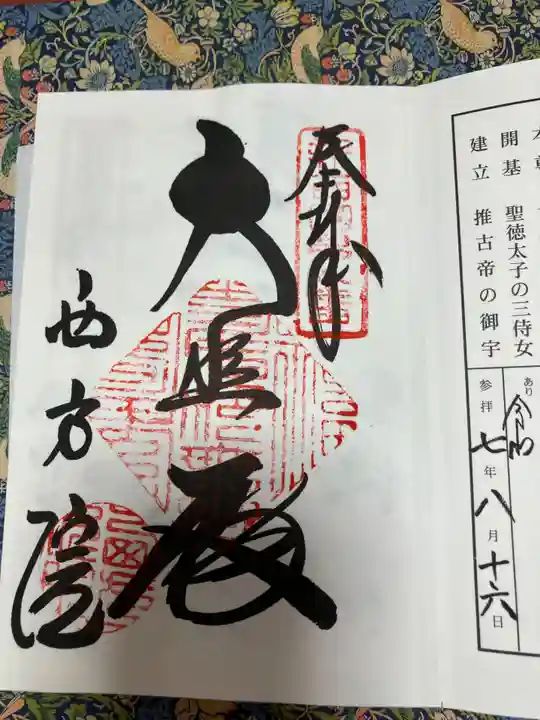 開基 聖徳太子の三侍女
建立 推古帝の御宇
あり
令和
参拝 七年八月十六日
奉拝
大悲殿
西方院